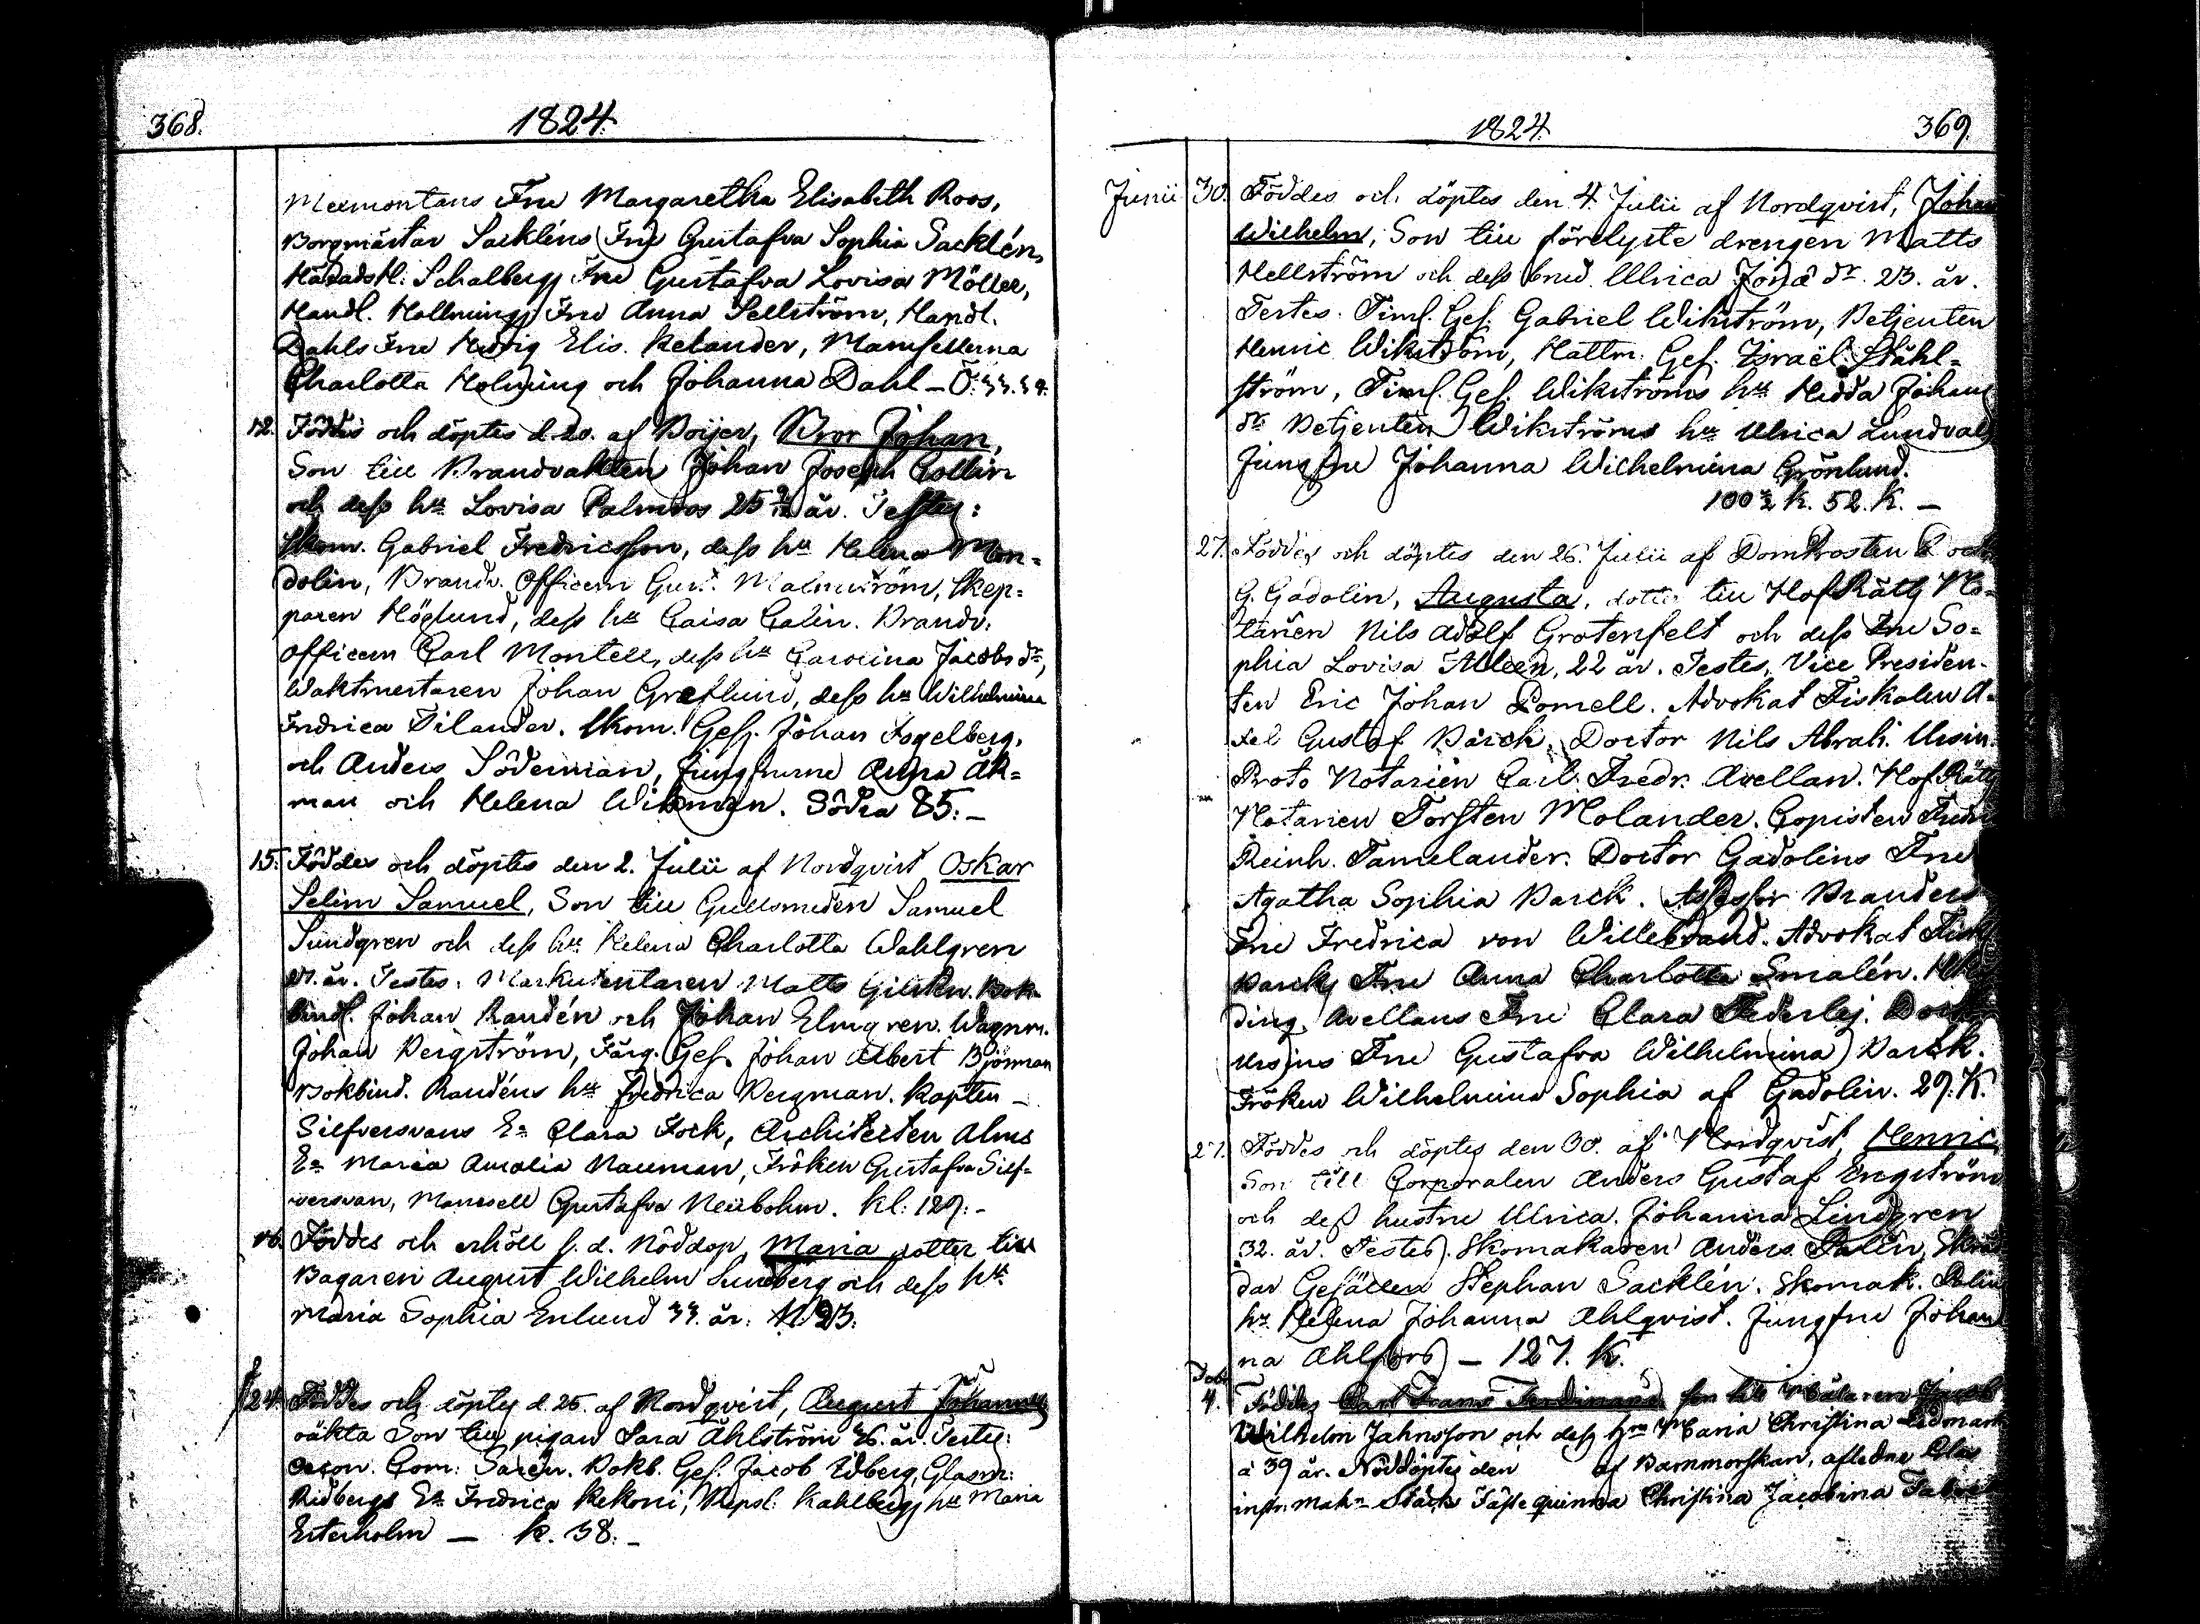 368.
1824.
Mexmontans Fru Margaretha Elisabeth Roos,
Borgmästar Sackléns Fru Gustafva Sophia Sacklén,
HäradsH: Schalbergs Fru Gustafva Lovisa Möller,
Handl. Hollmings Fru Anna Sellström, Handl.
Dahls Fru Hedvig Elis. Kelander, Mamsellerna
Charlotta Holming och Johanna Dahl –
12. Föddes och döptes d. 20. af Boijer, Bror Johan,
Son till Brandvakten Johan Joseph Collin
och dess hu Lovisa Palmroos 25 år. Testes:
Skom. Gabriel Fredricsson, dess hu Helena Mon=
dolin, Brandv. Officern Gust. Malmström, Skep=
paren Höglund, dess hu Caisa Calin. Brandv.
Officern Carl Montell, dess hu Carolina Jacobs dr,
Waktmestaren Johan Greflund, dess hu Wilhelmina
Fredrica Filander. Skom. Ges. Johan Fogelberg,
och Anders Söderman, Jungfrurne Anna Åk=
man och Helena Wikman. Södra 85: –
15. Föddes och döptes den 2. Julii af Nordqvist Oskar
Selim Samuel, Son till Gullsmeden Samuel
Sundgren och dess hu Helena Charlotta Wahlgren
27. år. Testes: Markutentaren Matts Bok=
bind. Johan Randén och Johan Elmgren. Wagnm.
Johan Bergström, Färg. Ges. Johan Albert Björman
Bokbind. Randéns hu Fredrica Bergman. Kapten –
Silfversvans Ea Clara Fock, Architecten Alms
Ea Maria Amalia Nauman, Fröken Gustafva Silf=
versvan, Mamsell Gustafva Neübohm. Kl: 129: –
16. Föddes och erhöll s. d. Nöddop, Maria dotter till
Bagaren August Wilhelm Sundberg och dess hu
Maria Sophia Enlund 33 år.
24. Föddes och döptes d. 25. af Nordqvist, August Johannes
oäkta Son till pigan Sara Åhlström 26. år. Testes:
Com: Sarén. Bokb. Ges. Jacob Edberg, Glasm:
Ridbergs Ea Fredrica Kekoni, Repsl: Kahlbergs hu Maria
Esterholm — K. 38. –
1824.
369.
Junii 30. Föddes och döptes den 4. Julii af Nordqvist, Johan
Wilhelm, Son till förelyste drengen Matts
Hellström och dess brud Ulrica Jona dr. 23. år.
Testes. Timl. Ges. Gabriel Wikström, Betjenten
Henric Wikström, Hattm. Ges. Israël Ståhl=
ström, Timl. Ges. Wikströms hu Hedda Johans
dr Betjenten Wikströms hu Ulrica Lundvall
Jungfru Johanna Wilhelmina Grönlund.
100 ½ K. 52. K. –
27. Föddes och döptes den 26. Julii af DomProsten Doct
G. Gadolin, Augusta, dotter till HofRätts No=
tarien Nils Adolf Grotenfelt och dess Fru So=
phia Lovisa Alleen, 22 år. Testes, Vice Presiden=
ten Eric Johan Domell. Advokat Fiskalen A=
xel Gustaf Barck, Doctor Nils Abrah. Ursin.
Proto Notarien Carl Fredr. Avellan. HofRätts
Notarien Torsten Molander. Copisten Fredr
Reinh. Tamelander. Doctor Gadolins Fru
Agatha Sophia Barck. Assessor Branders
Fru Fredrica von Willebrand. Advokat Fisk
Barcks Fru Anna Charlotta Smalén.
ding. Avellans Fru Clara Federley. Doct
Ursins Fru Gustafva Wilhelmina Barck.
Fröken Wilhelmina Sophia af Gadolin. 29. K.
27. Föddes och döptes den 30. af Nordqvist, Henric
Son till Corporalen Anders Gustaf Engström
och dess hustru Ulrica Johanna Lindgren
32. år. Testes. Skomakaren Anders Dalin, Skräd
dar Gesällen Stephan Sacklén. Skomak. Dalins
hu Helena Johanna Ahlqvist. Jungfru Johan
na Ahlfors – 127. K.
4. Föddes Carl Frans Ferdinand son till Målaren Jacob
Wilhelm Jahnsson och dess hru Maria Christina Ledmark
à 39 år. Nöddöptes den af Barnmorskan, afledne
instr. mak:
quinna Christina Jacobina